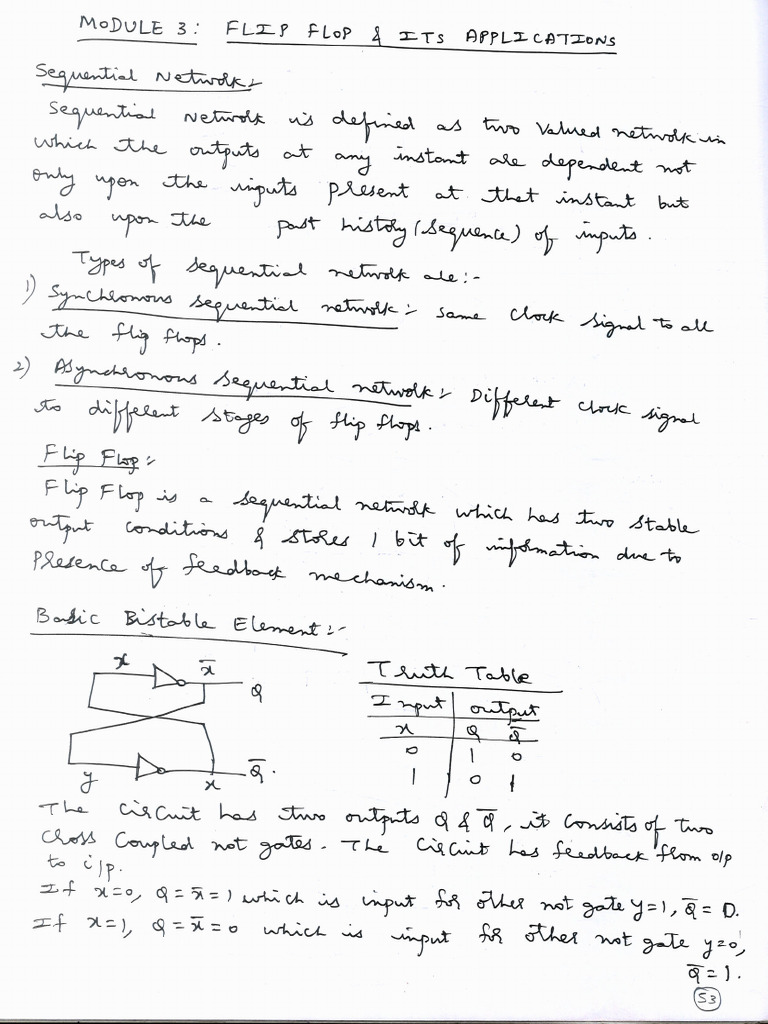 MODULE 3: FLIP FLOP & ITS APPLICATIONS
Sequential Network:-
Sequential Network is defined as two valued network in
which the outputs at any instant are dependent not
only upon the inputs present at that instant but
also upon the past history (sequence) of inputs.
Types of sequential network are:-
1) Synchronous sequential network:- same clock signal to all
the flip flops.
2) Asynchronous sequential network:- Different clock signal
to different stages of flip flops.
Flip Flop:-
Flip Flop is a sequential network which has two stable
output conditions & stores 1 bit of information due to
presence of feedback mechanism.
Basic Bistable Element:-
x x̄ Q
y x Q̄.
Truth Table
Input output
x Q Q̄
0 1 0
1 0 1
The circuit has two outputs Q & Q̄, it consists of two
cross coupled not gates. The circuit has feedback from o/p
to i/p.
If x=0, Q = x̄ = 1 which is input for other not gate y=1, Q̄ = 0.
If x=1, Q = x̄ = 0 which is input for other not gate y=0,
Q̄ = 1.
53